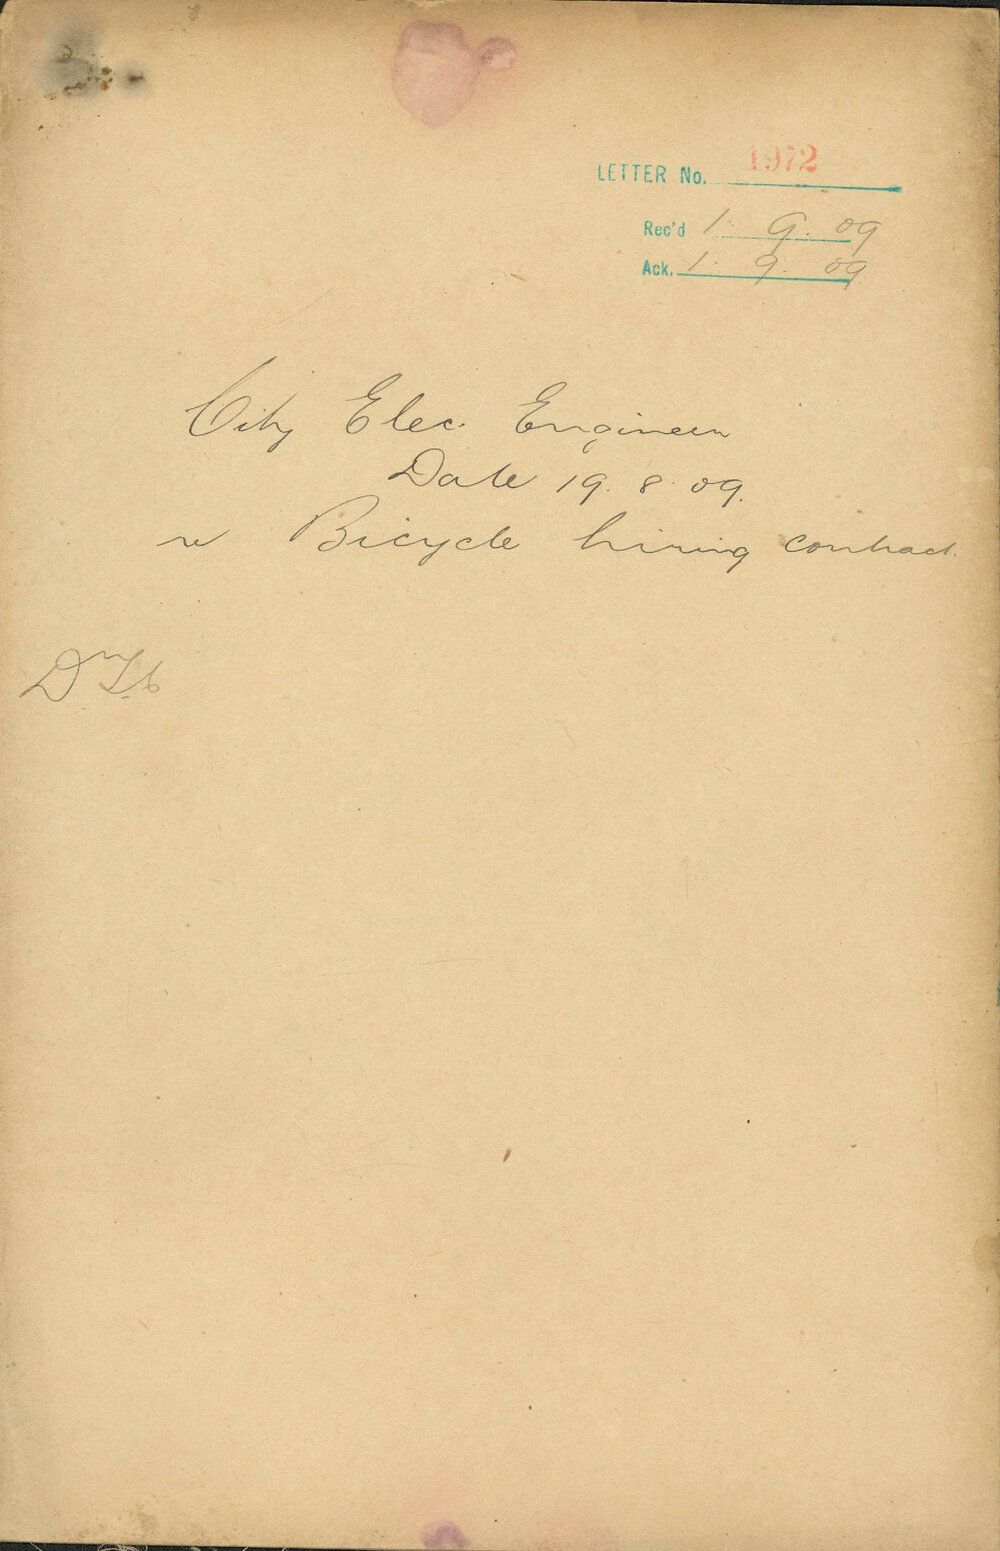 LETTER No. 1972
Rec'd 1. 9. 09
Ack. 1. 9. 09
City Elec. Engineer
Date 19. 8. 09.
re Bicycle hiring contract.